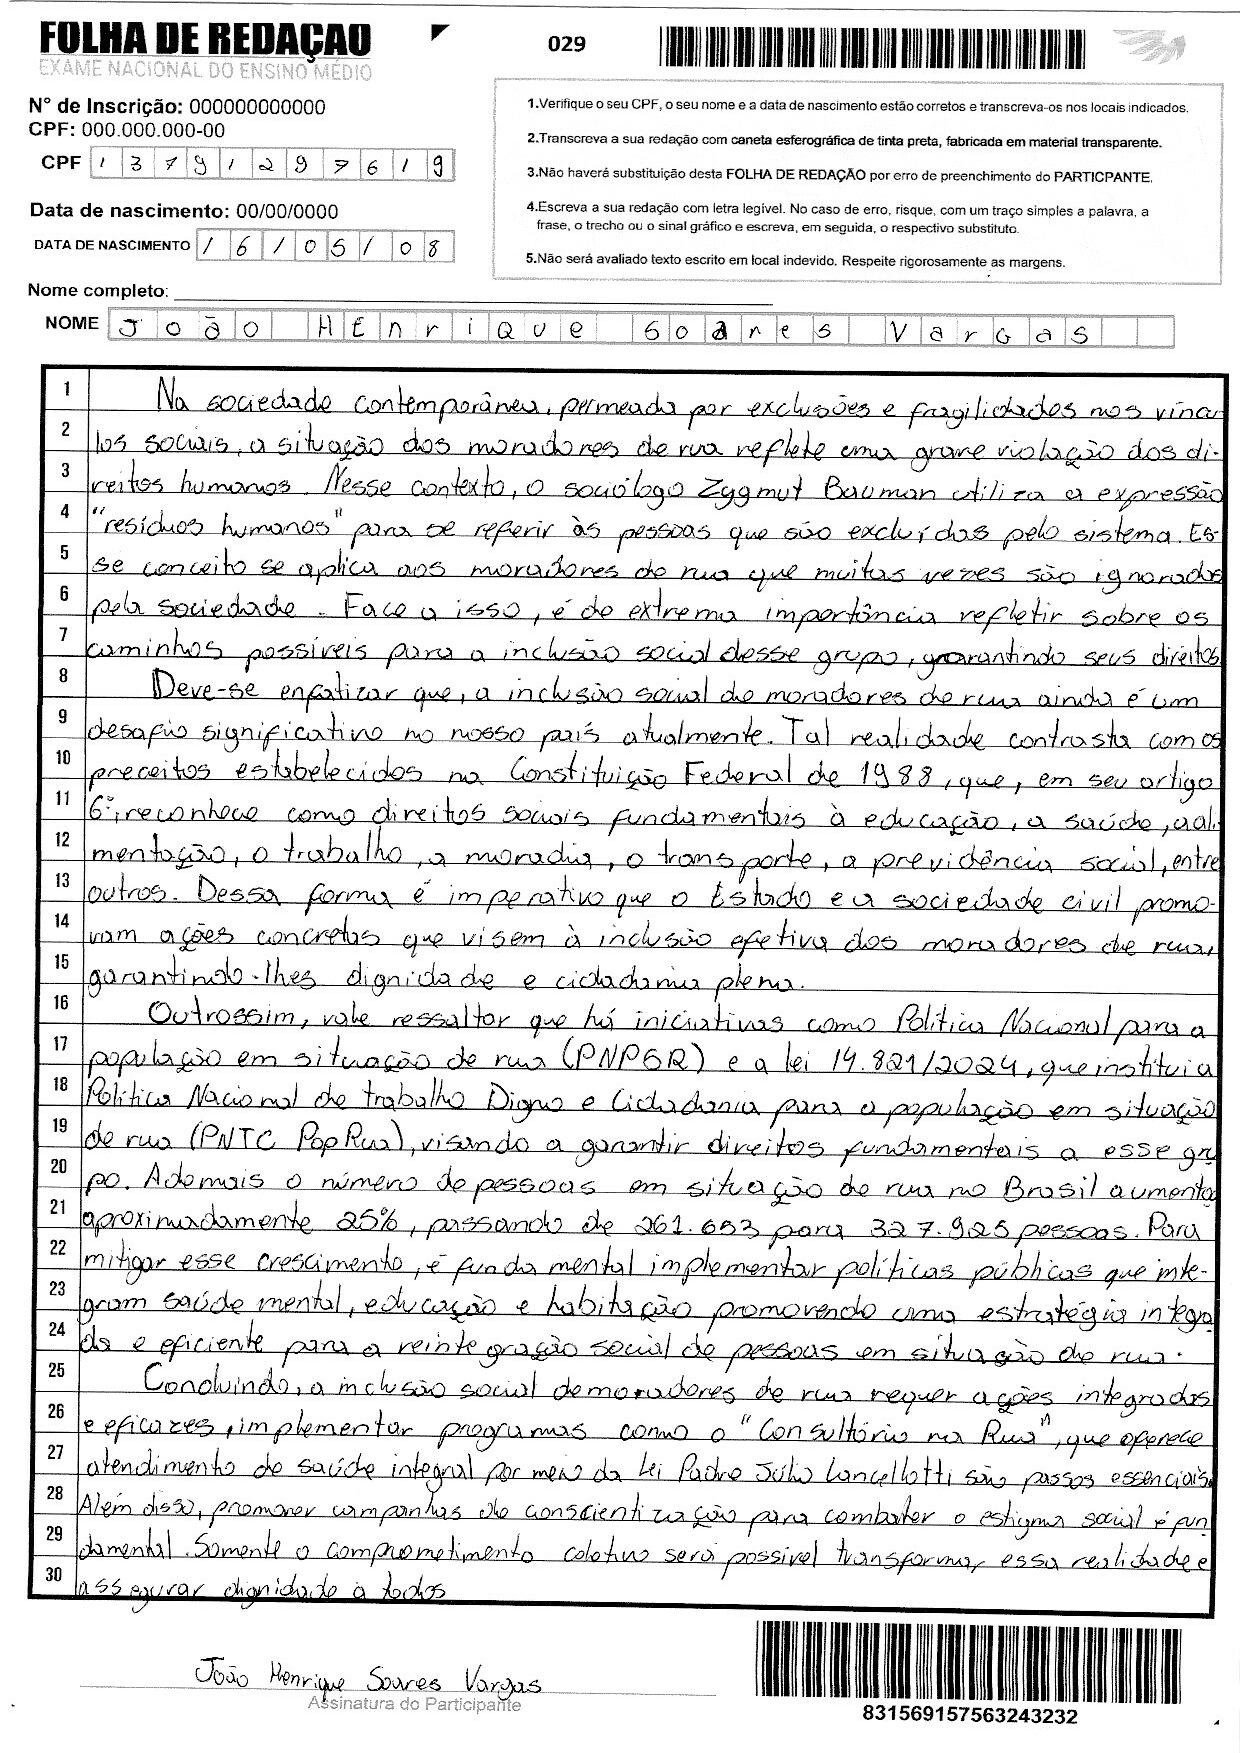 FOLHA DE REDAÇAO
EXAME NACIONAL DO ENSINO MÉDIO
029
N° de Inscrição: 000000000000
CPF: 000.000.000-00
CPF 13791297619
Data de nascimento: 00/00/0000
DATA DE NASCIMENTO 16/05/08
1.Verifique o seu CPF, o seu nome e a data de nascimento estão corretos e transcreva-os nos locais indicados.
2.Transcreva a sua redação com caneta esferográfica de tinta preta, fabricada em material transparente.
3.Não haverá substituição desta FOLHA DE REDAÇÃO por erro de preenchimento do PARTICPANTE.
4.Escreva a sua redação com letra legível. No caso de erro, risque, com um traço simples a palavra, a
frase, o trecho ou o sinal gráfico e escreva, em seguida, o respectivo substituto.
5.Não será avaliado texto escrito em local indevido. Respeite rigorosamente as margens.
Nome completo:
NOME João HEnriQue Soares VarGas
1 Na sociedade contemporânea, permeada por exclusões e fragilidades nos víncu
2 los sociais, a situação dos moradores de rua reflete uma grave violação dos di-
3 reitos humanos. Nesse contexto, o sociólogo Zygmut Bauman utiliza a expressão
4 "resíduos humanos" para se referir às pessoas que são excluídas pelo sistema. Es-
5 se conceito se aplica aos moradores de rua que muitas vezes são ignorados
6 pela sociedade. Face a isso, é de extrema importância refletir sobre os
7 caminhos possíveis para a inclusão social desse grupo, garantindo seus direitos
8 Deve-se enfatizar que, a inclusão social de moradores de rua ainda é um
9 desafio significativo no nosso país atualmente. Tal realidade contrasta com os
10 preceitos estabelecidos na Constituição Federal de 1988, que, em seu artigo
11 6º, reconhece como direitos sociais fundamentais à educação, a saúde, a ali
12 mentação, o trabalho, a moradia, o transporte, a previdência social, entre
13 outros. Dessa forma é imperativo que o Estado e a sociedade civil promo-
14 vam ações concretas que visem à inclusão efetiva dos moradores de rua,
15 garantindo-lhes dignidade e cidadania plena.
16 Outrossim, vale ressaltar que há iniciativas como Política Nacional para a
17 população em situação de rua (PNPSR) e a lei 14.821/2024, que institui a
18 Política Nacional de trabalho Digno e Cidadania para a população em situação
19 de rua (PNTC PopRua), visando a garantir direitos fundamentais a esse gru
20 po. Ademais o número de pessoas em situação de rua no Brasil aumentou
21 aproximadamente 25%, passando de 261.653 para 327.925 pessoas. Para
22 mitigar esse crescimento, é fundamental implementar políticas públicas que inte-
23 gram saúde mental, educação e habitação promovendo uma estratégia integra
24 da e eficiente para a reintegração social de pessoas em situação de rua.
25 Concluindo, a inclusão social de moradores de rua requer ações integradas
26 e eficazes, implementar programas como o "Consultório na Rua", que oferece
27 atendimento de saúde integral por meio da Lei Padre Júlio Lancellotti são passos essenciais.
28 Além disso, promover campanhas de conscientização para combater o estigma social é fun
29 damental. Somente o comprometimento coletivo será possível transformar essa realidade e
30 assegurar dignidade a todos
João Henrique Soares Vargas
Assinatura do Participante
831569157563243232